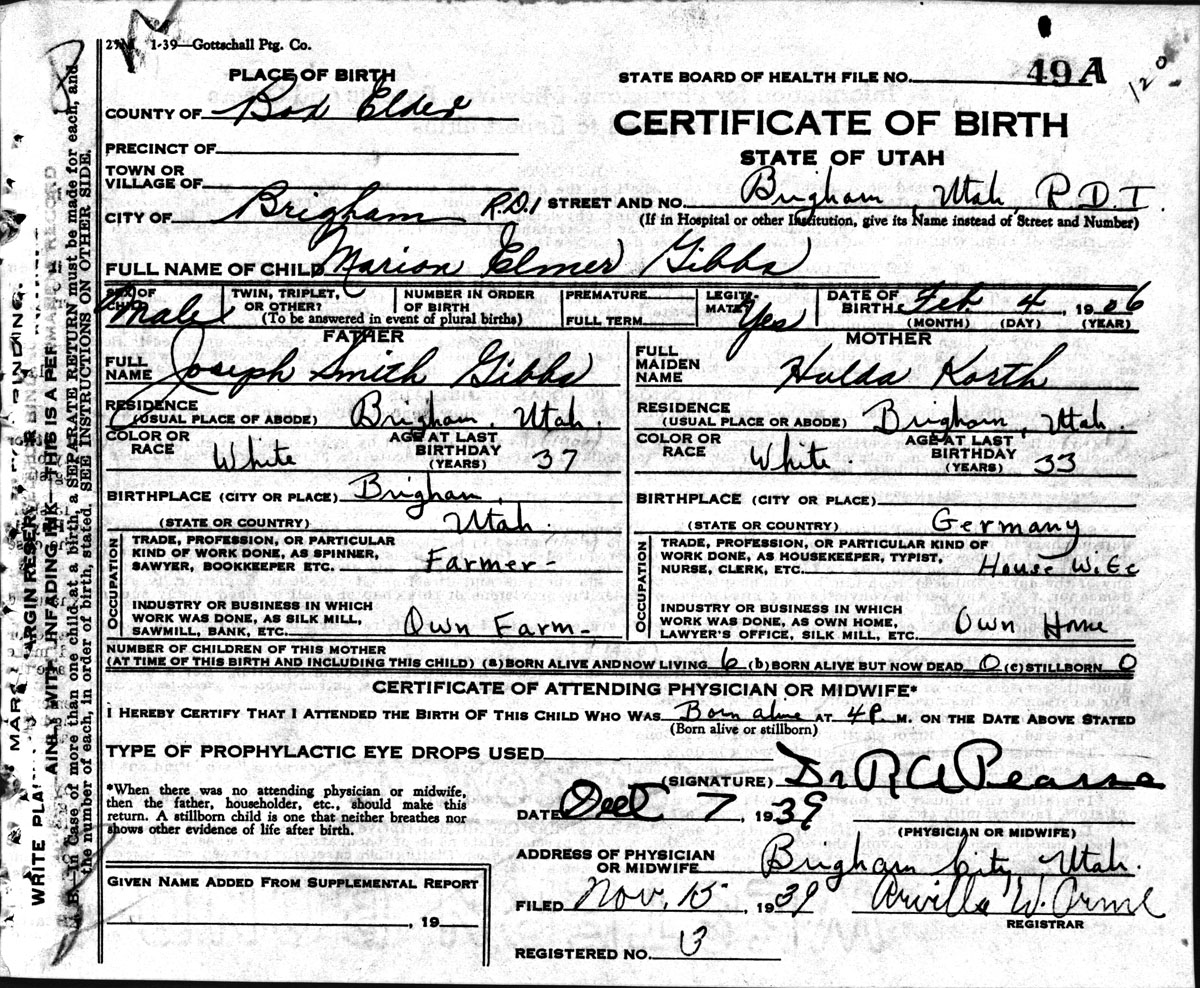 27M 1-39—Gottschall Ptg. Co.
PLACE OF BIRTH
STATE BOARD OF HEALTH FILE NO. 49A
120
COUNTY OF Box Elder
CERTIFICATE OF BIRTH
PRECINCT OF
STATE OF UTAH
TOWN OR
VILLAGE OF
CITY OF Brigham R.D.1 STREET AND NO. Brigham, Utah, R.D.I.
(If in Hospital or other Institution, give its Name instead of Street and Number)
FULL NAME OF CHILD Marion Elmer Gibbs
SEX OF CHILD Male
TWIN, TRIPLET, OR OTHER?
NUMBER IN ORDER OF BIRTH
(To be answered in event of plural births)
PREMATURE
FULL TERM
LEGITIMATE? Yes
DATE OF BIRTH Feb. 4, 1906
(MONTH) (DAY) (YEAR)
FATHER
FULL NAME Joseph Smith Gibbs
RESIDENCE
(USUAL PLACE OF ABODE) Brigham, Utah.
COLOR OR RACE White
AGE AT LAST BIRTHDAY (YEARS) 37
BIRTHPLACE (CITY OR PLACE) Brigham,
(STATE OR COUNTRY) Utah.
OCCUPATION
TRADE, PROFESSION, OR PARTICULAR
KIND OF WORK DONE, AS SPINNER,
SAWYER, BOOKKEEPER ETC. Farmer-
INDUSTRY OR BUSINESS IN WHICH
WORK WAS DONE, AS SILK MILL,
SAWMILL, BANK, ETC. Own Farm-
MOTHER
FULL MAIDEN NAME Hulda Korth
RESIDENCE
(USUAL PLACE OR ABODE) Brigham, Utah.
COLOR OR RACE White.
AGE AT LAST BIRTHDAY (YEARS) 33
BIRTHPLACE (CITY OR PLACE)
(STATE OR COUNTRY) Germany
OCCUPATION
TRADE, PROFESSION, OR PARTICULAR KIND OF
WORK DONE, AS HOUSEKEEPER, TYPIST,
NURSE, CLERK, ETC. House Wife
INDUSTRY OR BUSINESS IN WHICH
WORK WAS DONE, AS OWN HOME,
LAWYER'S OFFICE, SILK MILL, ETC. Own Home
NUMBER OF CHILDREN OF THIS MOTHER
(AT TIME OF THIS BIRTH AND INCLUDING THIS CHILD) (a) BORN ALIVE AND NOW LIVING 6 (b) BORN ALIVE BUT NOW DEAD 0 (c) STILLBORN 0
CERTIFICATE OF ATTENDING PHYSICIAN OR MIDWIFE*
I HEREBY CERTIFY THAT I ATTENDED THE BIRTH OF THIS CHILD WHO WAS Born alive AT 4P M. ON THE DATE ABOVE STATED
(Born alive or stillborn)
TYPE OF PROPHYLACTIC EYE DROPS USED
*When there was no attending physician or midwife,
then the father, householder, etc., should make this
return. A stillborn child is one that neither breathes nor
shows other evidence of life after birth.
(SIGNATURE) Dr R A Pearse
DATE Oct 7, 1939
(PHYSICIAN OR MIDWIFE)
ADDRESS OF PHYSICIAN
OR MIDWIFE Brigham City, Utah.
GIVEN NAME ADDED FROM SUPPLEMENTAL REPORT
, 19
FILED Nov. 15, 1939 Arvilla W. Orme
REGISTRAR
REGISTERED NO. 13
WRITE PLAINLY WITH UNFADING INK—THIS IS A PERMANENT RECORD
MARGIN RESERVED FOR BINDING.
N. B.—In Case of more than one child at a birth, a SEPARATE RETURN must be made for each, and
the number of each, in order of birth, stated. SEE INSTRUCTIONS ON OTHER SIDE.